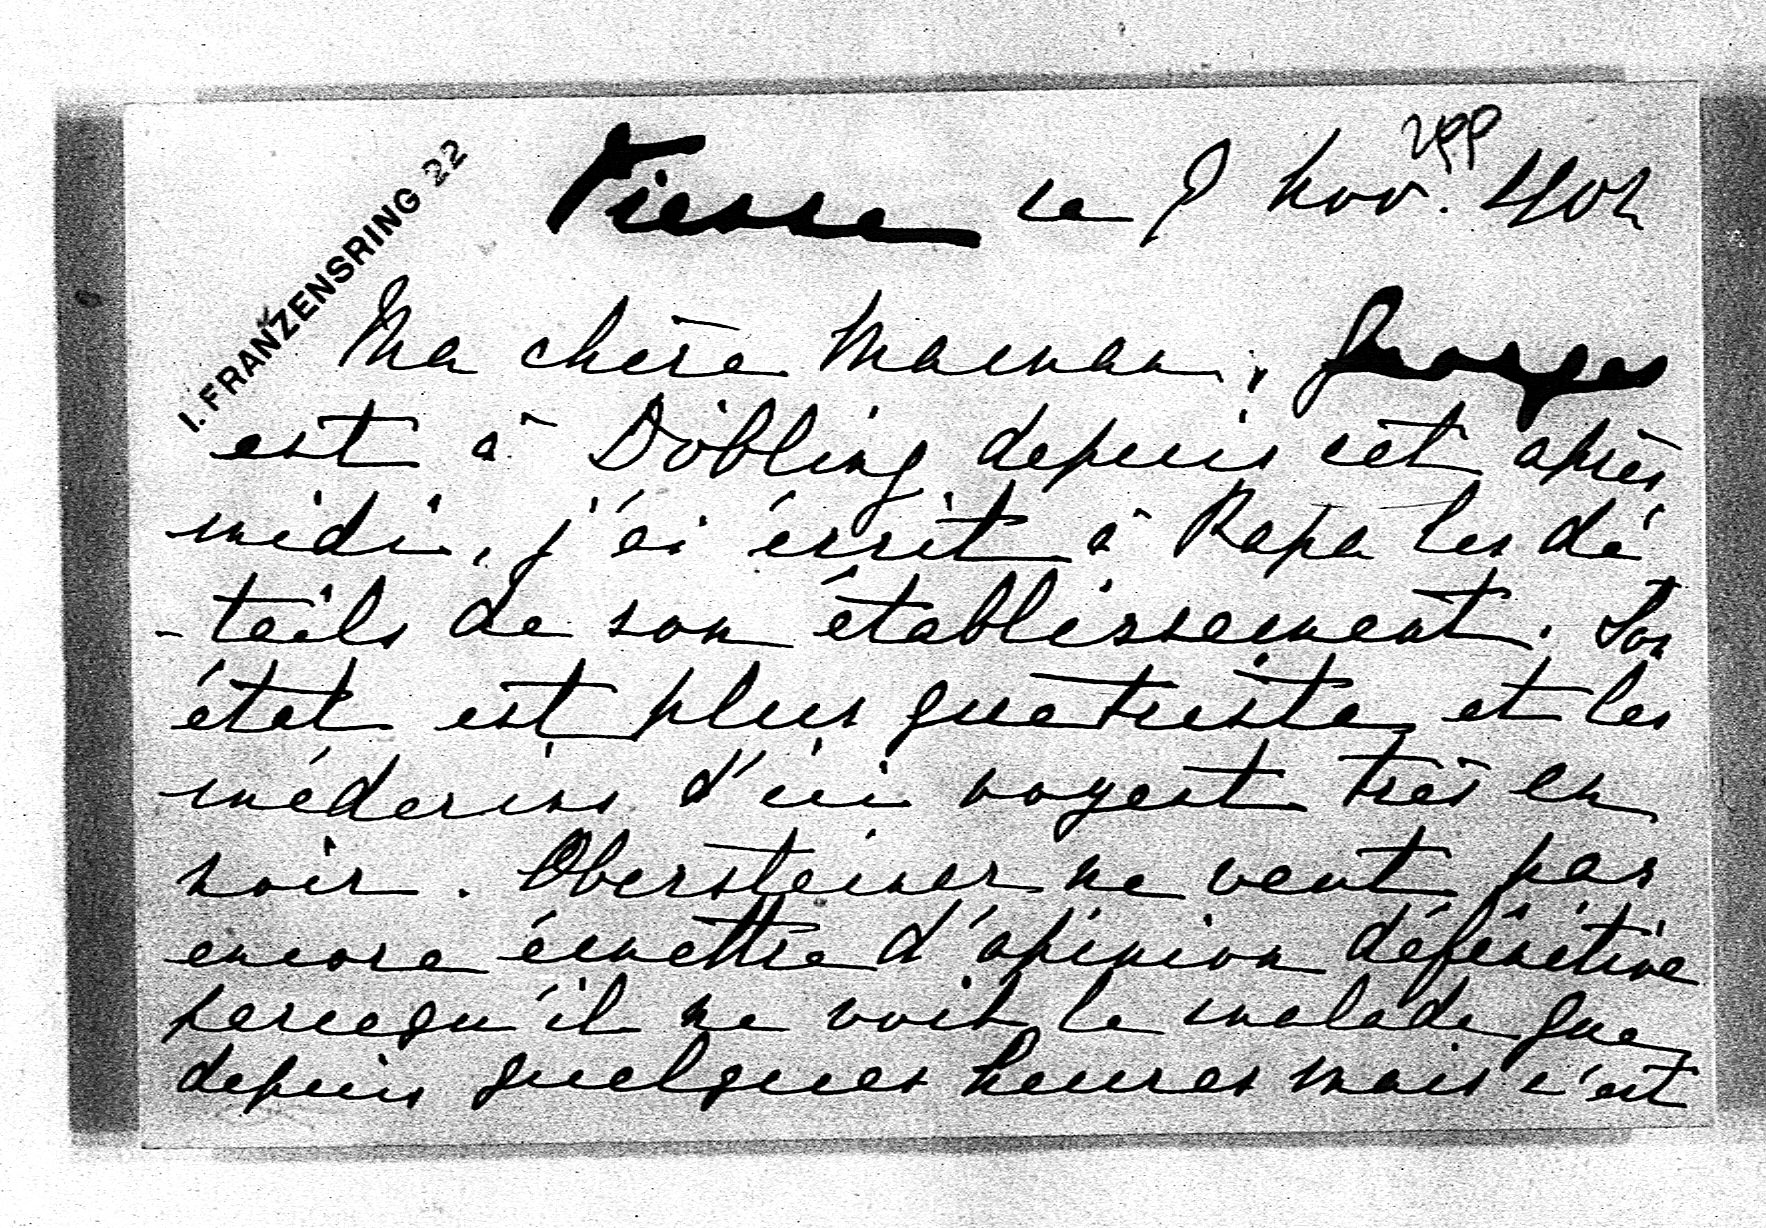 I. FRANZENSRING 22
Vienne le 8 Nov. 402
Ma chère Maman, Georges
est à Döbling depuis cet après
midi, j'ai écrit à Papa les dé
-tails de son établissement. Son
état est plus que triste et les
médecins d'ici voyent très en
noir. Obersteiner ne veut pas
encore émettre d'opinion définitive
parcequ'il ne voit le malade que
depuis quelques heures mais c'est